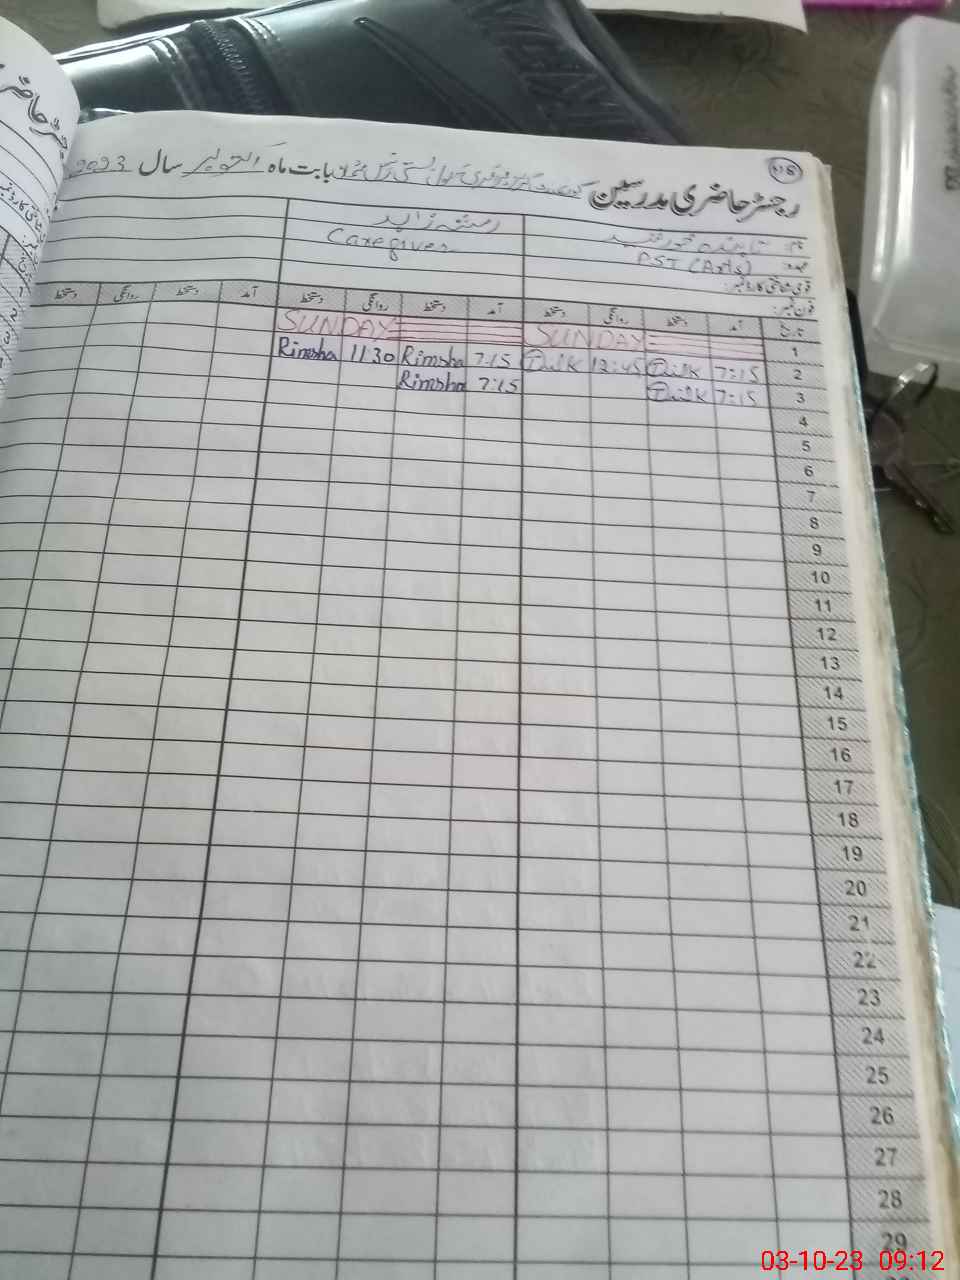 118
رجسٹر حاضری مدرسین
بابت ماہ اکتوبر سال 2023
نام:
عہدہ: PST (Arts)
Caregiver
قومی شناختی کارڈ نمبر:
فون نمبر:
تاریخ آمد دستخط روانگی دستخط آمد دستخط روانگی دستخط آمد دستخط روانگی دستخط
1 SUNDAY SUNDAY
2 7:15 12:45 7:15 Rimsha 11:30 Rimsha
3 7:15 7:15 Rimsha
4
5
6
7
8
9
10
11
12
13
14
15
16
17
18
19
20
21
22
23
24
25
26
27
28
29
03-10-23 09:12